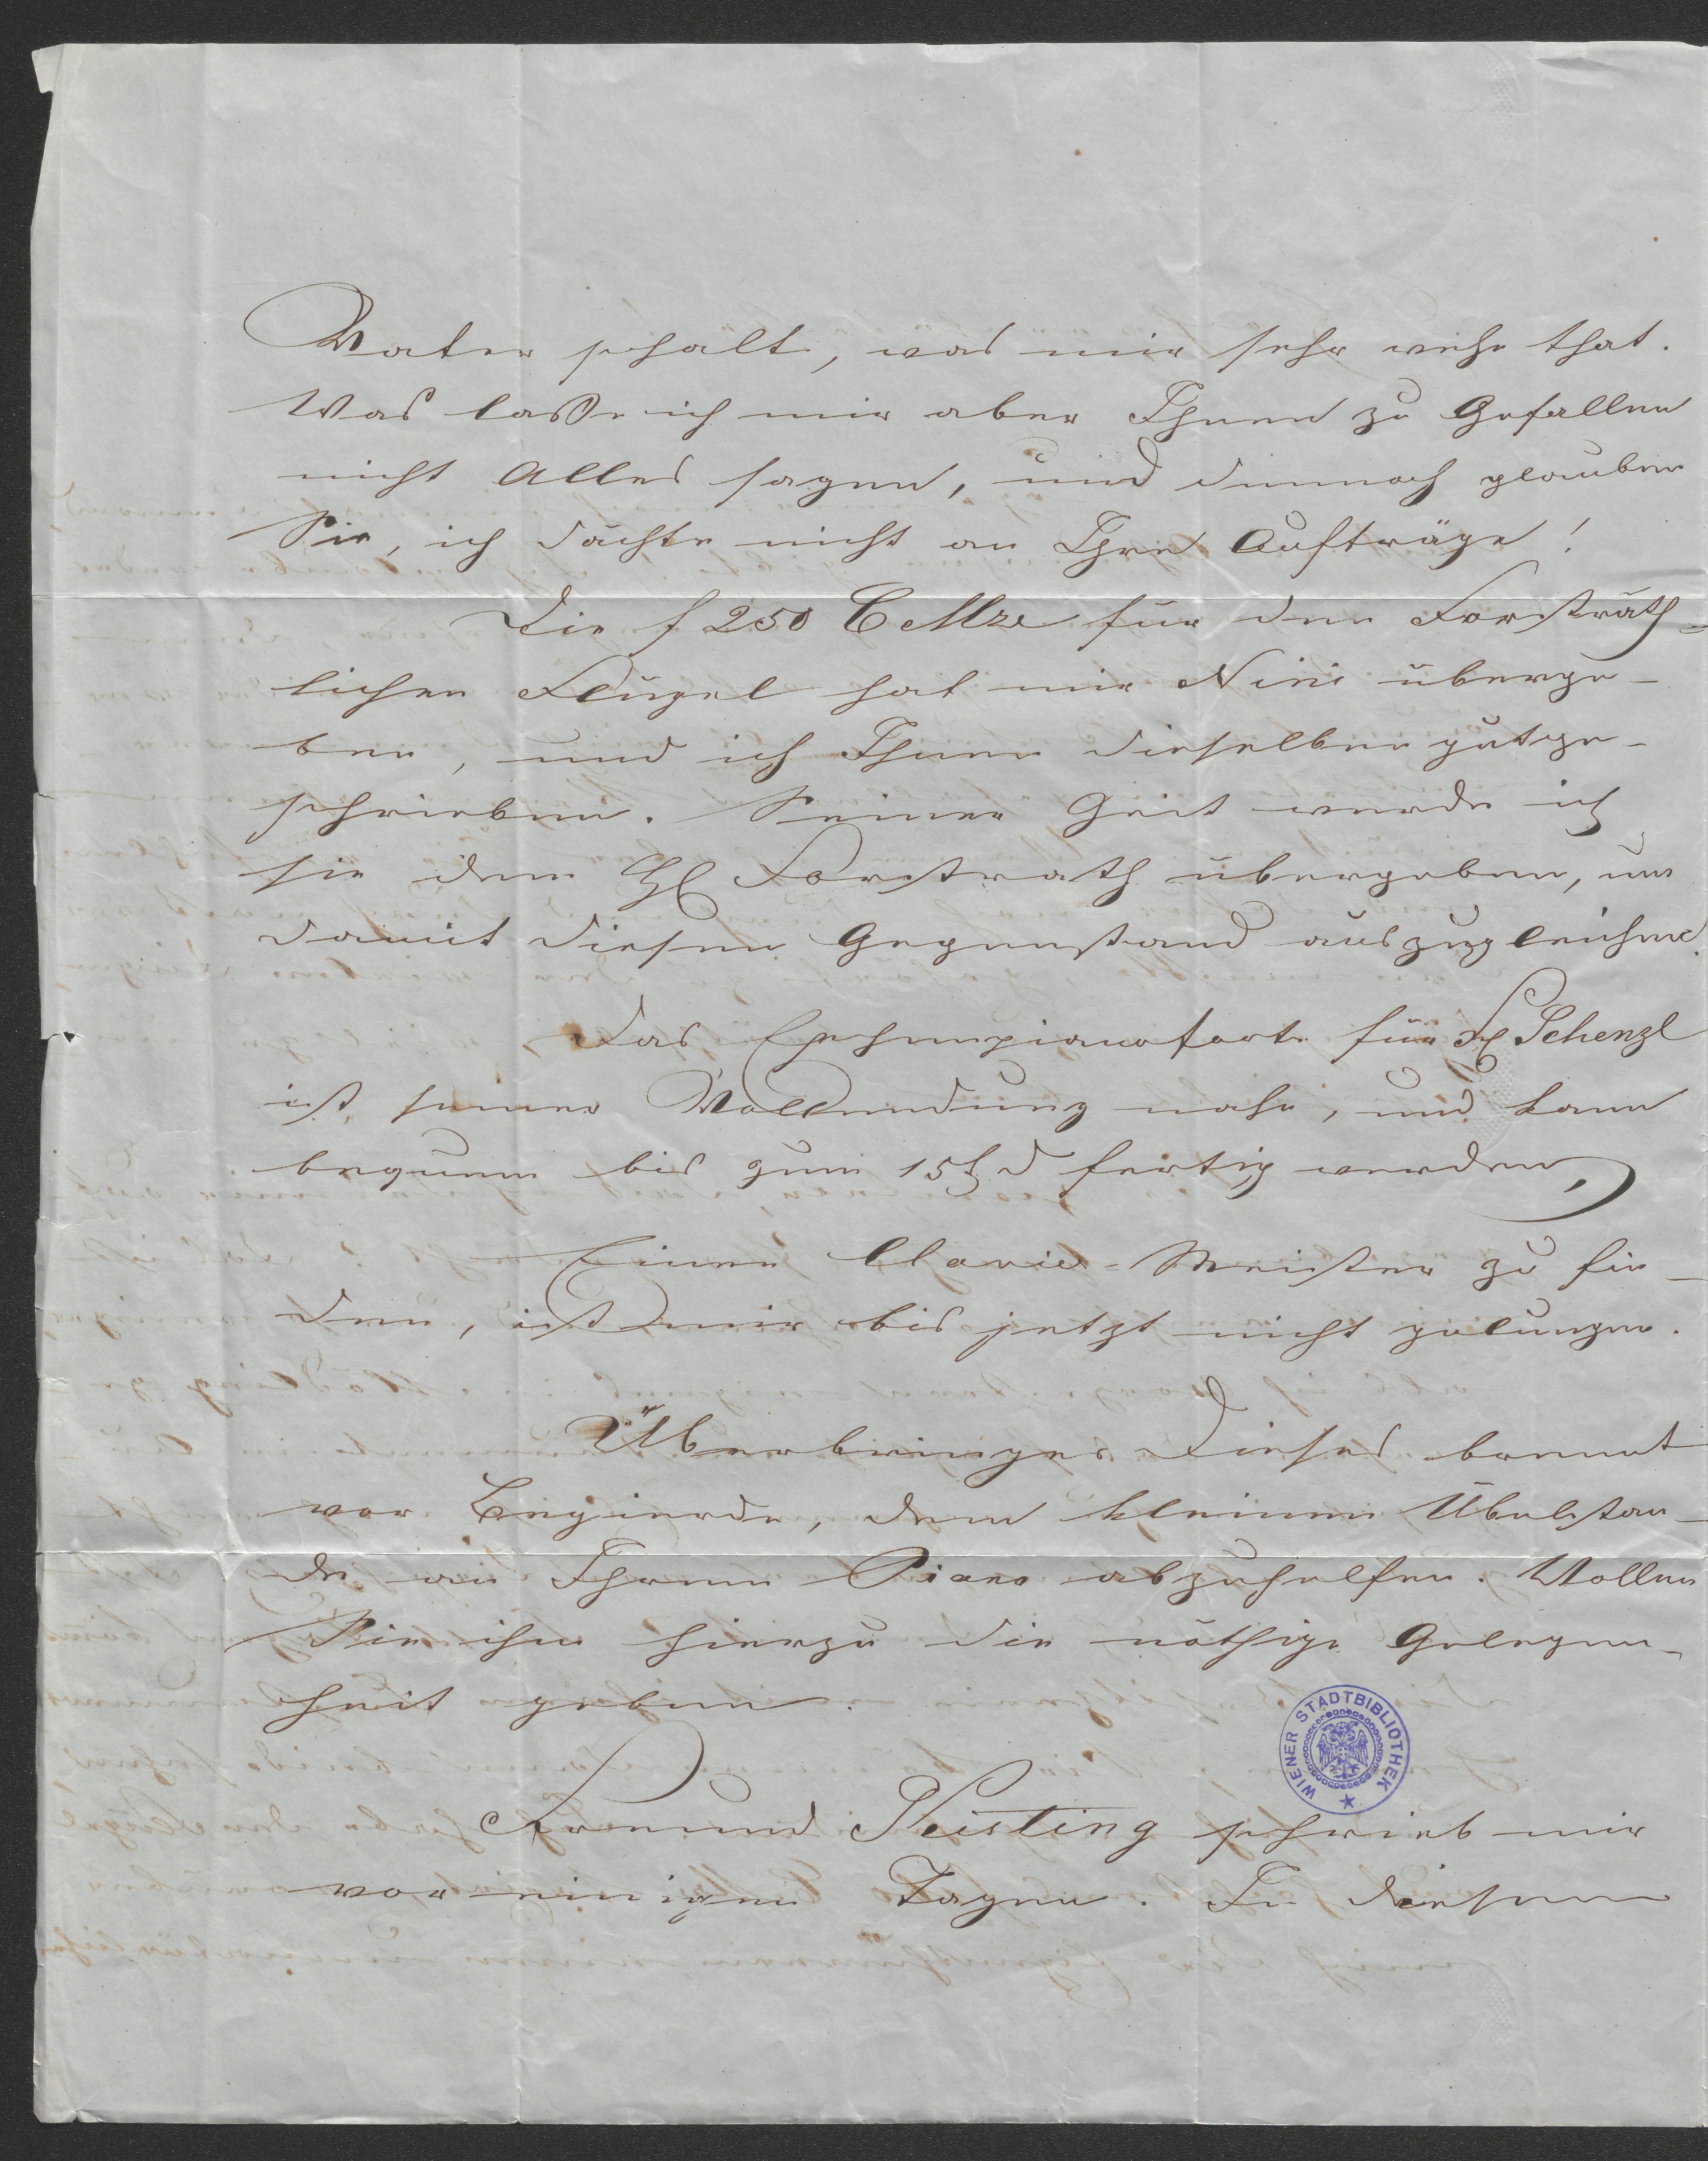 Vater schalt, was mir sehr wehe that.
Was laße ich mir aber Ihnen zu Gefallen
nicht Alles sagen, und dennoch glauben
Sie, ich dächte nicht an Ihre Aufträge!
Die f 250 C Mze für den Forsträth-
lichen Flügel hat mir Nini überge-
ben, und ich Ihnen dieselben gutge-
schrieben. Seiner Zeit werde ich
sie dem H Forstrath übergeben, um
damit diesen Gegenstand auszugleichen.
Das pianoforte für Schenzl
ist seiner Vollendung nahe, und kann
bequem bis zum 15t d fertig werden,
Einen Clavier-Meister zu fin-
den, ist mir bis jetzt nicht gelungen.
Überbringer dieses brennt
vor Begierde, dem kleinen Übelstan-
de an Ihrem Piano abzuhelfen. Wollen
Sie ihm hierzu die nöthige Gelegen-
heit geben.
Freund schrieb mir
vor einigen Tagen. In diesem
WIENER STADTBIBLIOTHEK